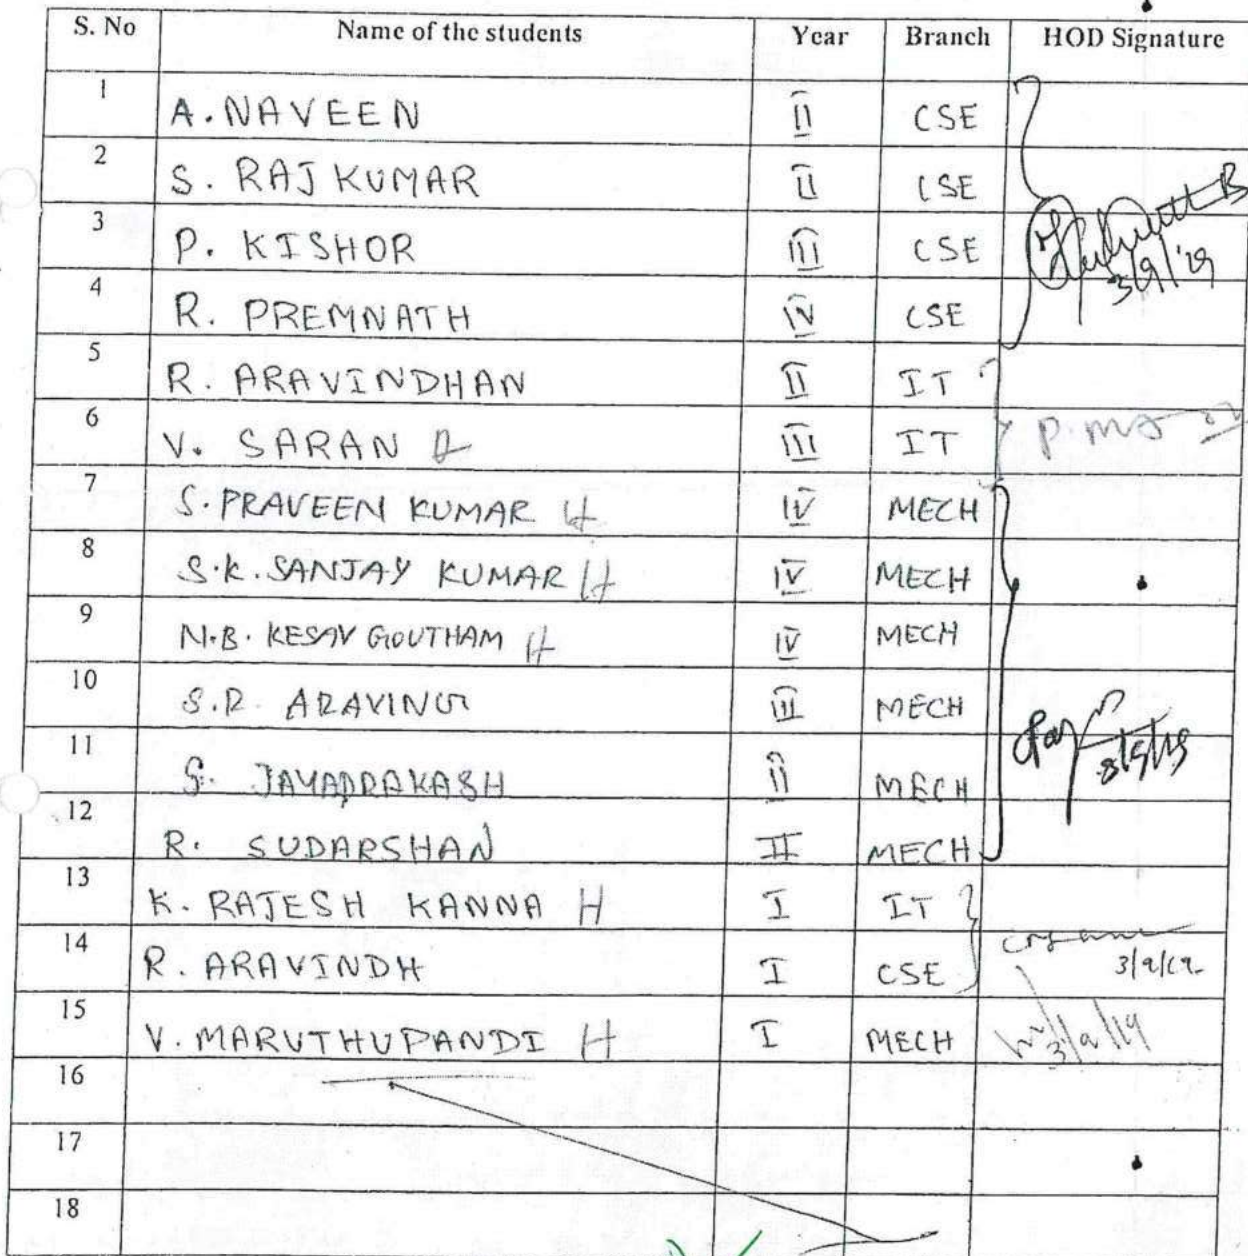 S. No Name of the students Year Branch HOD Signature
1 A. NAVEEN II CSE
2 S. RAJ KUMAR II CSE
3 P. KISHOR III CSE
3/9/'19
4 R. PREMNATH IV CSE
5 R. ARAVINDHAN II IT
6 V. SARAN III IT
7 S. PRAVEEN KUMAR H IV MECH
8 S.K. SANJAY KUMAR H IV MECH
9 N.B. KESAV GOUTHAM H IV MECH
10 S.R. ARAVIND III MECH
11 S. JAYAPRAKASH II MECH
12 R. SUDARSHAN II MECH
13 K. RAJESH KANNA H I IT
14 R. ARAVINDH I CSE 3/9/19
15 V. MARUTHUPANDI H I MECH 3/9/19
16
17
18